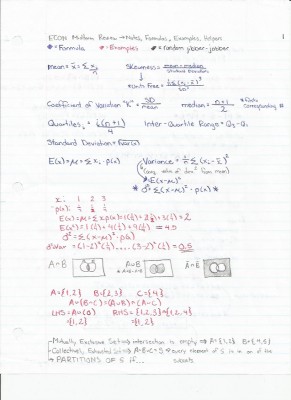 ECON Midterm Review → Notes, Formulas, Examples, Helpers 1
* = Formula * = Examples * = random jibber-jabber
mean = x̄ = Σ xᵢ/n Skewness = mean - median / Standard Deviation
* Units Free =
Coefficient of Variation "K" = SD/mean median = n+1/2 * Data Corresponding #
Quartiles: = i(n+1)/4 Inter-Quartile Range = Q₃-Q₁
Standard Deviation = √Var(x)
E(x) = μ = Σ xᵢ · p(x) Variance = 1/n Σ (xᵢ - x̄)²
from mean)
* E(x-μ)²
* σ² = Σ (x-μ)² · p(x) *
x: 1 2 3
p(x): ¼ ½ ¼
E(x) = μ = Σ x p(x) = 1(¼) + 2(½) + 3(¼) = 2
E(x²) = 1(¼) + 4(½) + 9(¼) = 4.5
σ² = Σ (x-μ)² · p(x)
= (1-2)²(¼) ... (3-2)²(¼) = 0.5
A∩B A∪B
A = {1,2} B = {2,3} C = {4}
A∪(B∩C) = (A∪B)∩(A∪C)
LHS = A∪(B) RHS = {1,2,3}∩{1,2,4}
= {1,2} = {1,2}
- Mutually Exclusive Set → intersection is empty ⇒ A = {1,2} B = {4,5}
- Collectively Exhausted Set → A∪B∪C = S → every element of S is in on of the subsets
→ PARTITIONS OF S if...